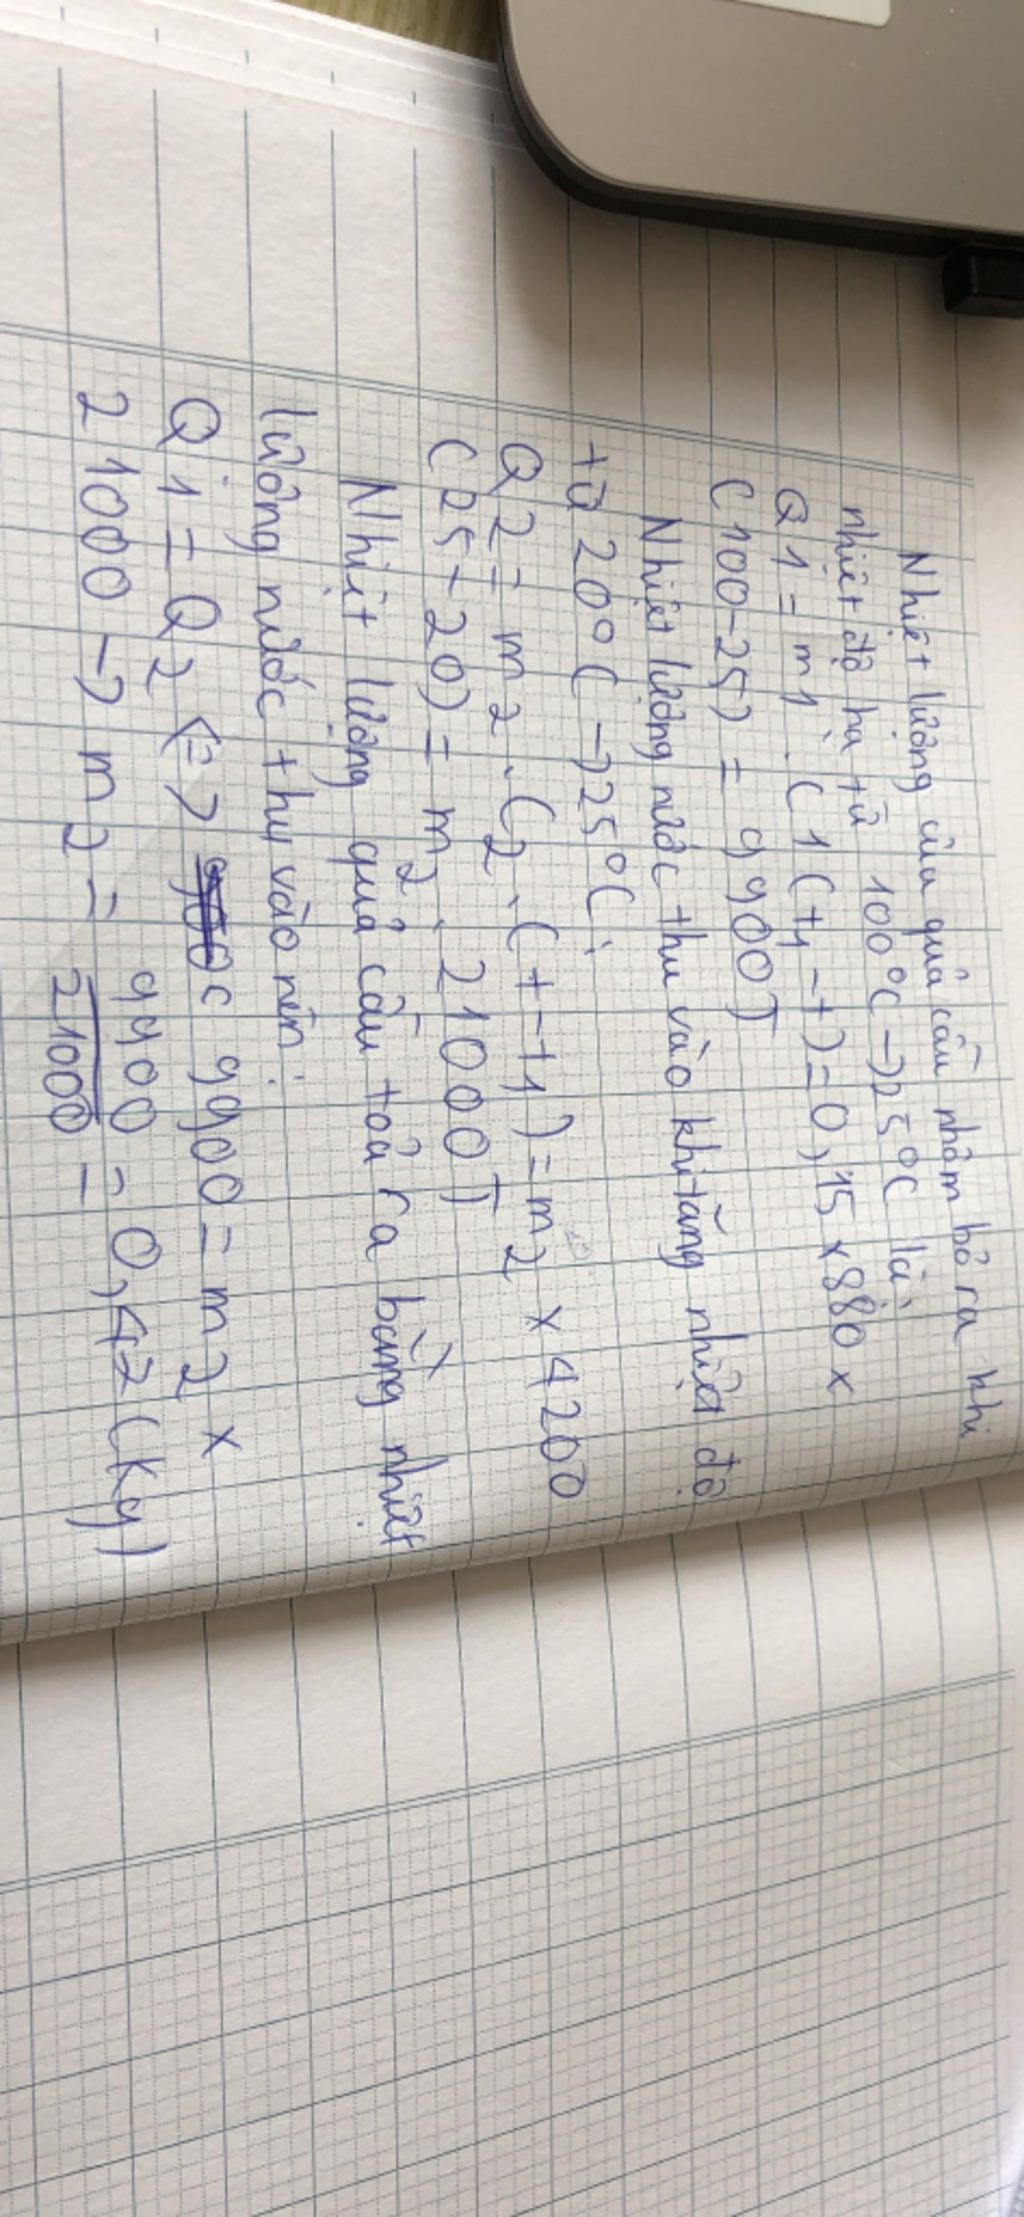 Nhiệt lượng của quả cầu nhôm bỏ ra khi
nhiệt độ hạ từ 100°C → 25°C là:
Q1 = m1 . C1(t1 - t) = 0,15 x 880 x
(100-25) = 9900J
Nhiệt lượng nước thu vào khi tăng nhiệt độ
từ 20°C → 25°C:
Q2 = m2 . C2 . (t - t1) = m2 x 4200
(25-20) = m2 . 21000J
Nhiệt lượng quả cầu toả ra bằng nhiệt
lượng nước thu vào nên:
Q1 = Q2 <=> 9900 = m2 x
21000 → m2 = 9900/21000 = 0,47 (Kg)